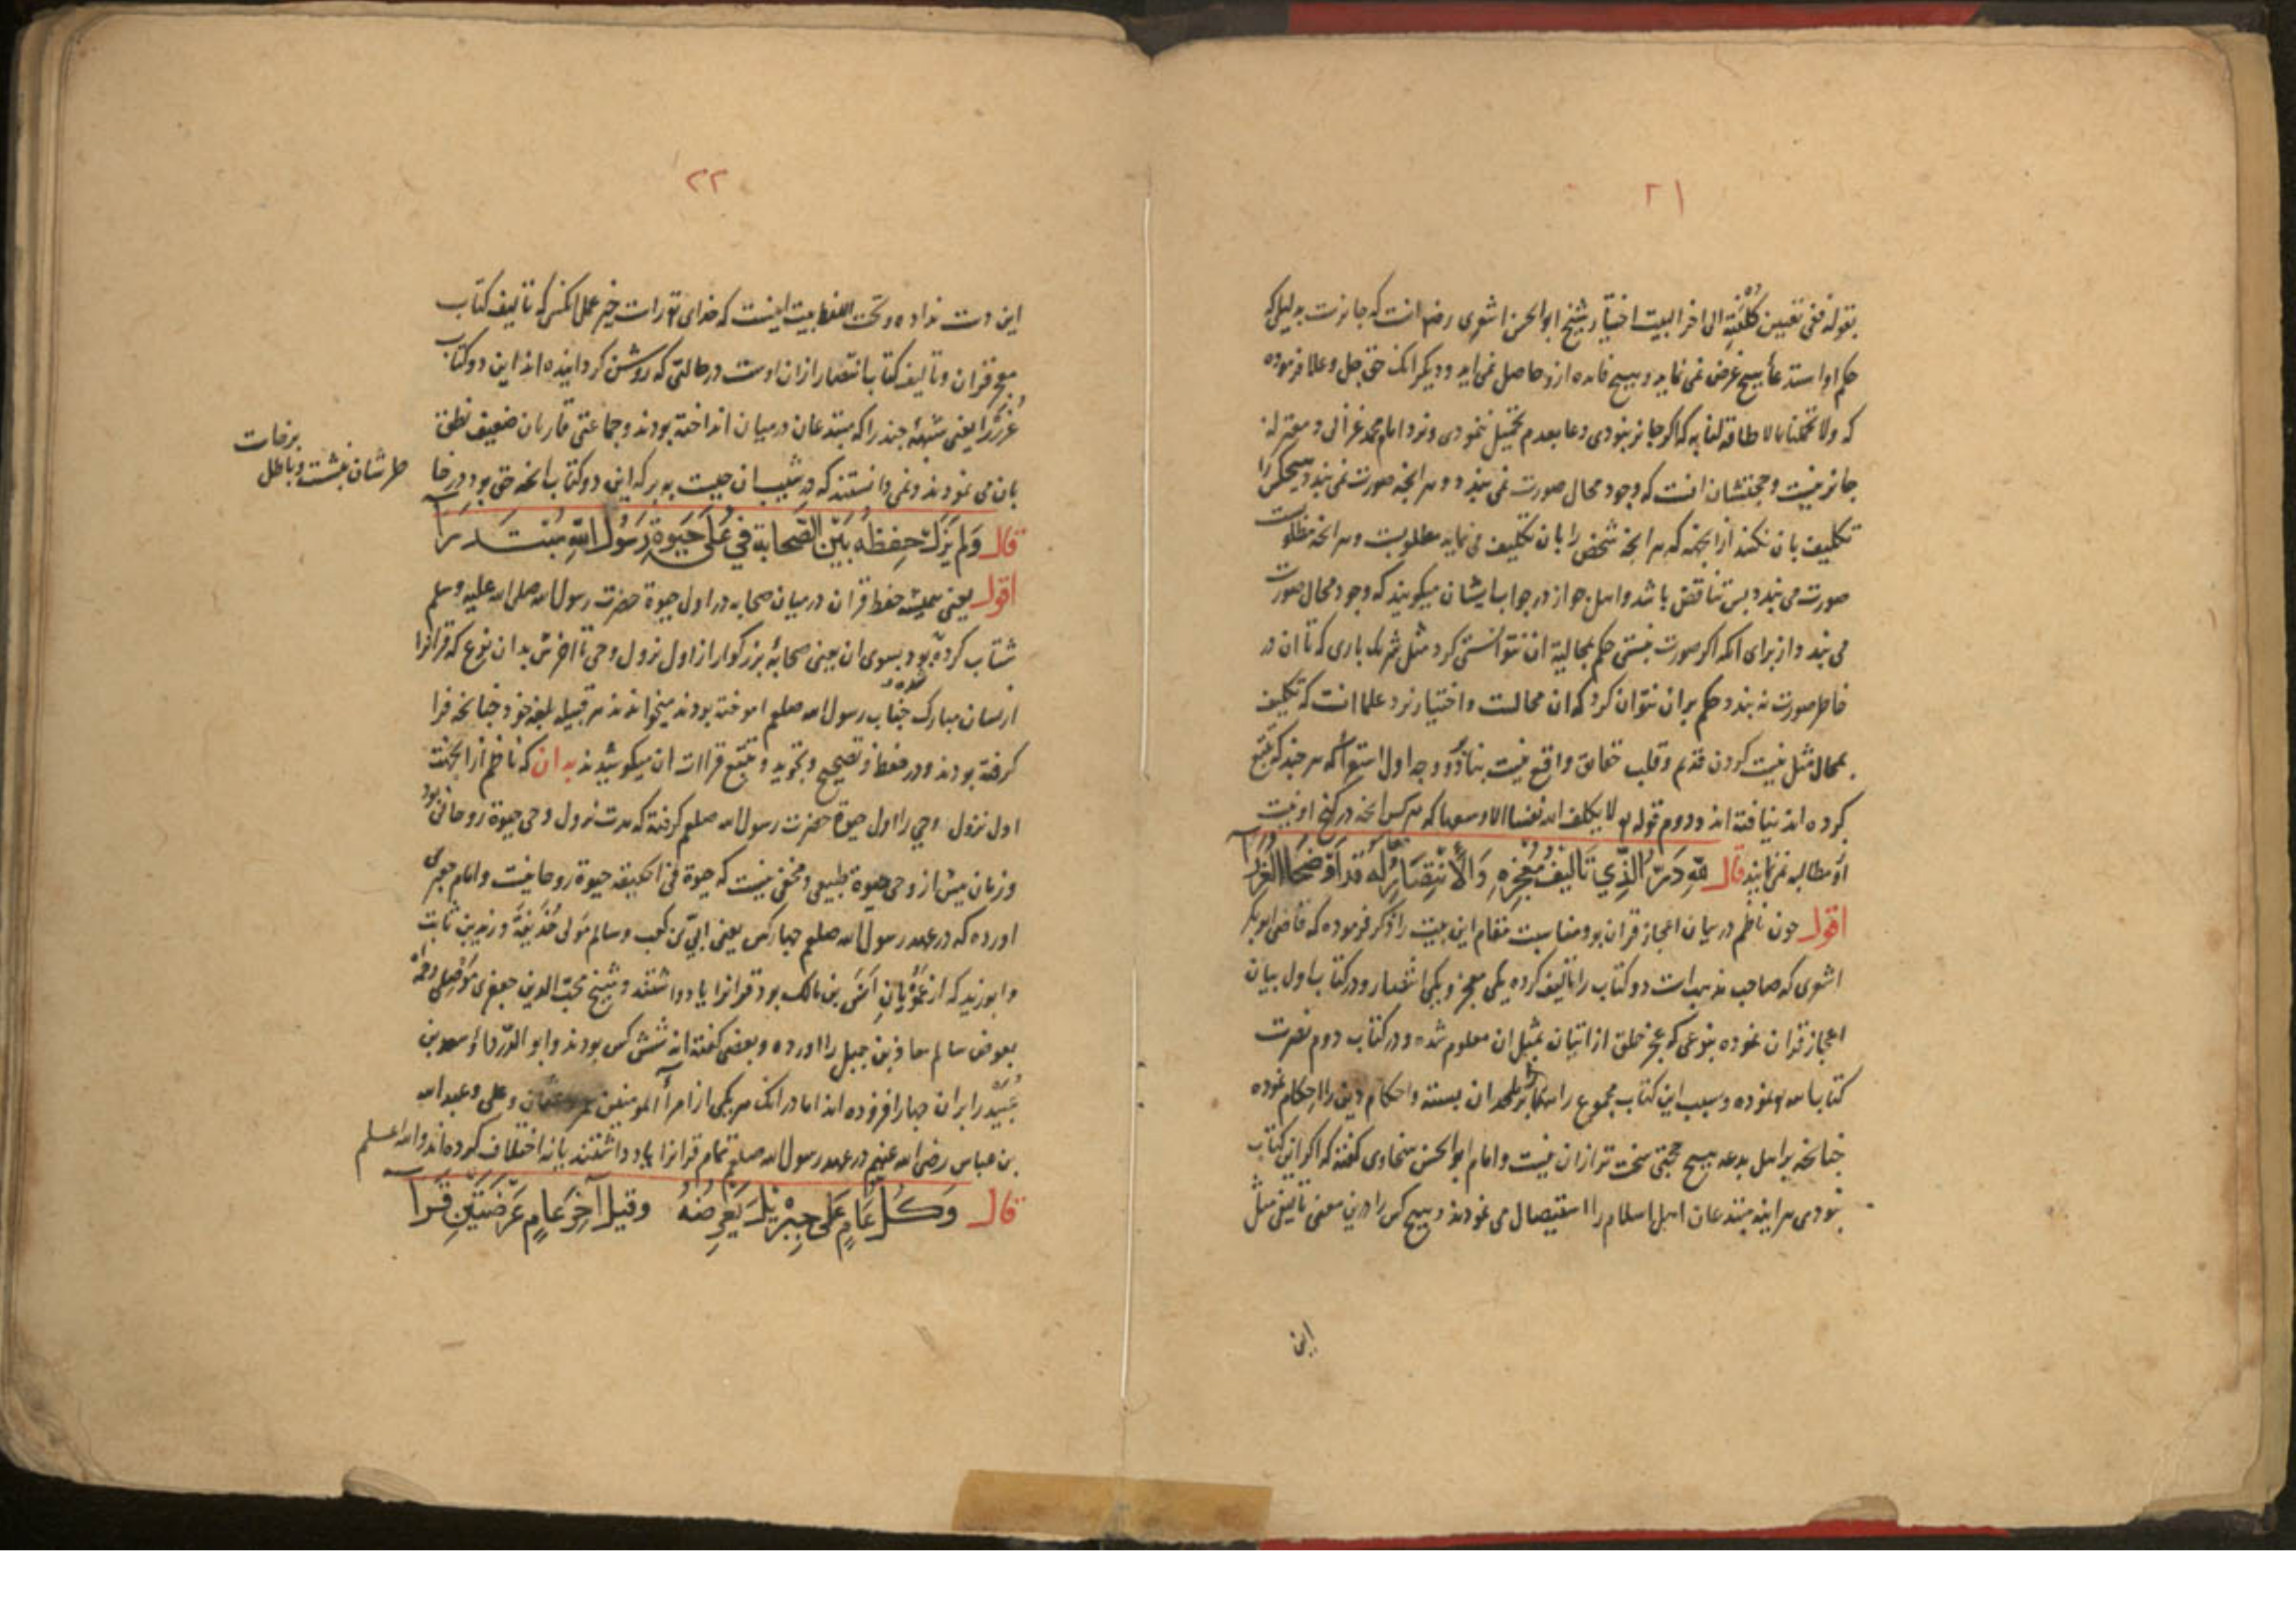 ٢١
بقوله ففی تعیین کلفته الی اخر البیت اختیار شیخ ابو الحسن اشعری رضه انست که جایزست بدلیل که
حکم او استدعاٴ هیچ غرض نمی نماید و هیچ فایده ازو حاصل نمی اید و دیکر انک حق جل و علا فرموده
که ولا تحملنا ما لا طاقة لنا به که اکر جایز نبودی دعا بعدم تحمیل ننمودی و نزد امام محمد غزالی و معتزله
جایز نیست و حجتشان انست که وجود محال صورت نمی بندد و هر انجه صورت نمی بندد هیچکس را
تکلیف بان نکنند از انجهة که هر انجه شخص را بان تکلیف می نماید مطلوبست و هر انجه مطلوبست
صورت می بندد بس تناقض باشد و اهل جواز در جواب ایشان میکویند که وجود محال صورت
می بندد از برای انکه اکر صورت نبستی حکم بمحالیة ان نتوانستی کرد مثل شریک باری که تا ان در
خاطر صورت نه بندد حکم بران نتوان کرد که ان محالست و اختیار نزد علما انست که تکلیف
بمحال مثل نیست کردن قدیم و قلب حقایق واقع نیست بنا بر دو وجه اول استقرا که هر جند که تتبع
کرده اند نیافته اند و دوم قوله تع لا یکلف الله نفسا الا وسعها که هر کس انجه در کنج او نیست
ازو مطالبه نمی نمایند قال لِلّهِ دَرُّ الَّذِي تَأْلِيفُ مُعْجِزِهِ وَالْأَنْتِصَارُ لَهُ قَدْ أَوْضَحَا الْغُرَرَا
اقول جون ناظم در بیان اعجاز قران بود و مناسبت مقام این بیت را ذکر فرموده که قاضی ابو بکر
اشعری که صاحب مذهب است دو کتاب را تالیف کرده یکی معجز و یکی انتصار و در کتاب اول بیان
اعجاز قران نموده بنوعی که عجز خلق از اتیان بمثل ان معلوم شده و در کتاب دوم نصرت
کتاب الله تع نموده و سبب این کتاب مجموع راهها بر ملحدان بسته و احکام دین را احکام نموده
جنانجه بر اهل بدعه هیچ حجتی سخت تر ازان نیست و امام ابو الحسن سخاوی کفته که اکر این کتاب
نبودی هر اینه مبتدعان اهل اسلام را استیصال می نمودند و هیچ کس را درین معنی تالیفی مثل
این
٢٢
این دست نداده و تحت اللفظ بیت اینست که خدای تع راست خیر عمل انکس که تالیف کتاب
معجز قران و تالیف کتاب انتصار ازان اوست در حالتی که روشن کردانیده اند این دو کتاب
غرر را یعنی شبهۀ جند را که مبتدعان در میان انداخته بودند و جماعتی قاریان ضعیف نطق
بان می نمودند و نمی دانستند که در شیب ان جیست به برکه این دو کتاب انجه حق بود در خا
طر شان بنشست و باطل
برخاست
قال وَلَمْ يَزَلْ حِفْظُهُ بَيْنَ الصَّحَابَةِ فِي عُلَى حَيَوةِ رَسُولِ اللّهِ مُبْتَدَرَا
اقول یعنی همیشه حفظ قران در میان صحابه در اول حیوة حضرت رسول الله صلی الله علیه وسلم
شتاب کرده بود بسوی ان یعنی صحابۀ بزرکوار از اول نزول وحی تا اخرش بدان نوع که قرانرا
از لسان مبارک جناب رسول الله صلعم اموخته بودند میخواندند هر قبیله بلغه خود جنانجه فرا
کرفته بودند و در حفظ و تصحیح و تجوید و تتبع قراات ان میکوشیدند بدان که ناظم از انجهت
اول نزول وحی را اول حیوة حضرت رسول الله صلعم کرفته که مدت نزول وحی حیوة روحانی بود
و زمان بیش از وحی حیوة طبیعی و مخفی نیست که حیوة فی الحقیقه حیوة روحانیست و امام جعبری
اورده که در عهد رسول الله صلعم جهار کس یعنی ابیّ بن کعب و سالم مولی حُذَیفَة و زید بن ثابت
و ابو زید که از عمویان انس بن مالک بود قرانرا یاد داشتند و شیخ محب الدین جعفری موصلی رحمه
بعوض سالم معاذ بن جبل را اورده و بعضی کفته اند شش کس بودند و ابو الدّرداٴ و سعد بن
عُبَیْد را بران جهار افزوده اند اما در انک هر یکی از امرأ المومنین عمر و عثمان و علی و عبد الله
بن عباس رضی الله عنهم در عهد رسول الله صلعم تمام قرانرا یاد داشتند یا نه اختلاف کرده اند والله اعلم
قال وَكُلَّ عَامٍ عَلَى جِبْرِيلَ يَعْرِضُهُ وَقِيلَ آخِرَ عَامٍ عَرْضَتَيْنِ قَرَا